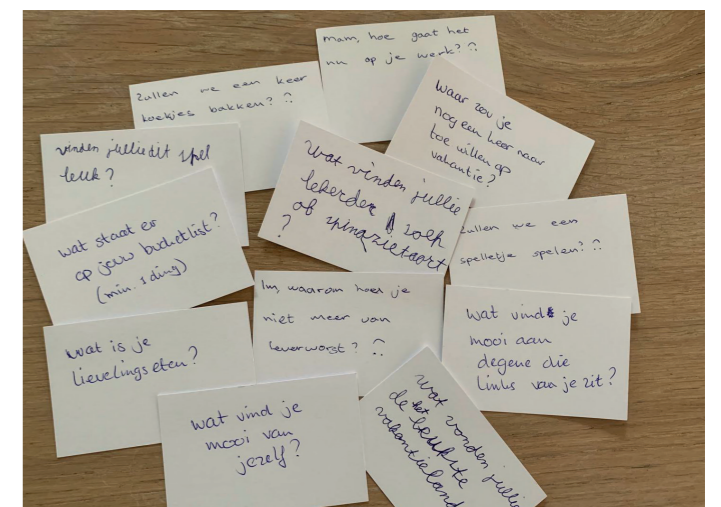 Mam, hoe gaat het
nu op je werk?
Zullen we een keer
koekjes bakken?
Waar zou je
nog een keer naar
toe willen op
vakantie?
vinden jullie dit spel
leuk?
Wat vinden jullie
lekerder soep
of spinazietaart
?
wat staat er
op jouw bucketlist?
(min. 1 ding)
Zullen we een
spelletje spelen?
Im, waarom hou je
niet meer van
leverworst?
Wat vind je
mooi aan
degene die
links van je zit?
wat is je
lievelingseten?
wat vind je
mooi van
jezelf?
wat vonden jullie
de het leukste
vakantieland